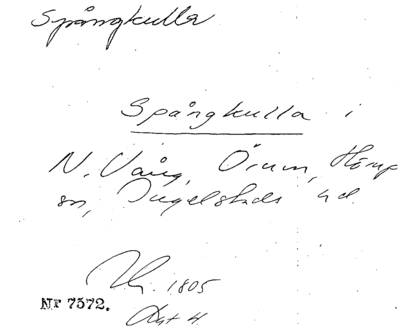 Spångkulla
Spångkulla i
N. Vång, Örum,
sn, Ingelstads hd
1805
Nr 7572.
Akt 4